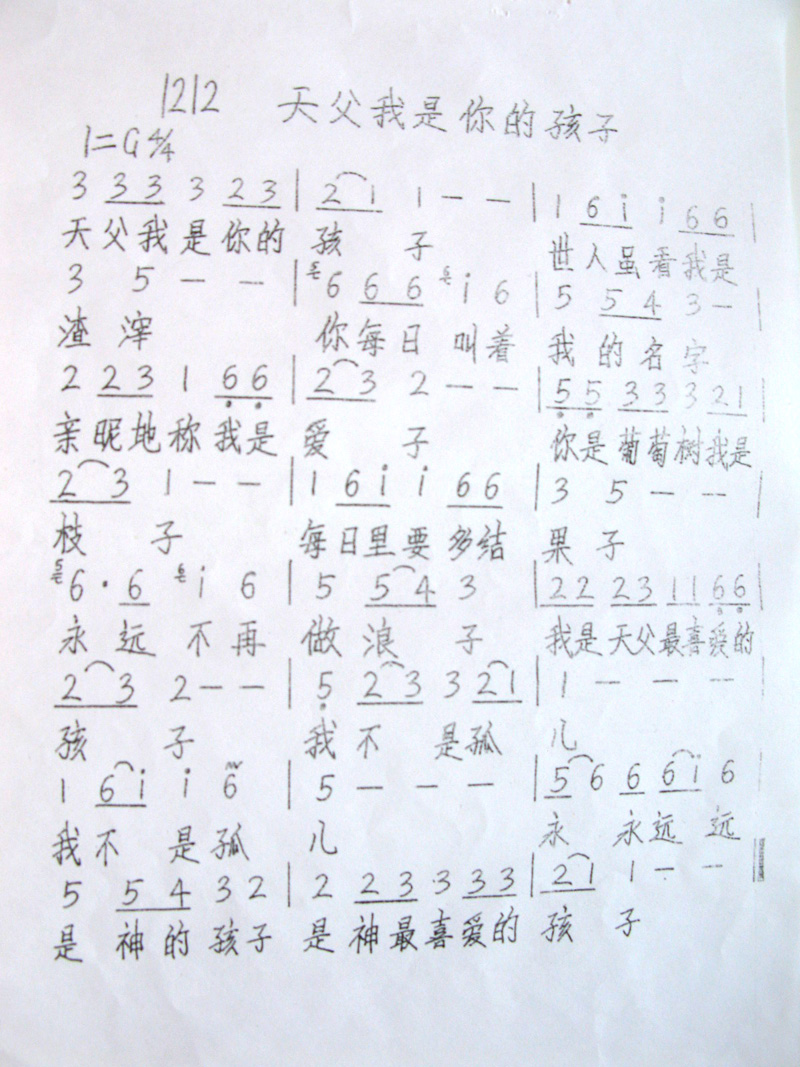 1212 天父我是你的孩子
1=G 4/4
3 3 3 3 2 3 | 2 1 1 - - | 1 6 i i 6 6 |
天父我是你的 孩 子 世人虽看我是
3 5 - - | 5 6 6 6 5 i 6 | 5 5 4 3 - |
渣滓 你每日叫着 我的名字
2 2 3 1 6 6 | 2 3 2 - - | 5 5 3 3 3 2 1 |
亲昵地称我是 爱 子 你是葡萄树我是
2 3 1 - - | 1 6 i i 6 6 | 3 5 - - |
枝 子 每日里要多结 果子
5 6 · 6 6 i 6 | 5 5 4 3 | 2 2 2 3 1 1 6 6 |
永远不再 做浪 子 我是天父最喜爱的
2 3 2 - - | 5 2 3 3 2 1 | 1 - - -
孩 子 我不 是孤 儿
1 6 i i 6 | 5 - - - | 5 6 6 6 i 6
我不 是孤 儿 永 永远 远
5 5 4 3 2 | 2 2 3 3 3 3 | 2 1 1 - - ‖
是 神的孩子 是神最喜爱的 孩 子